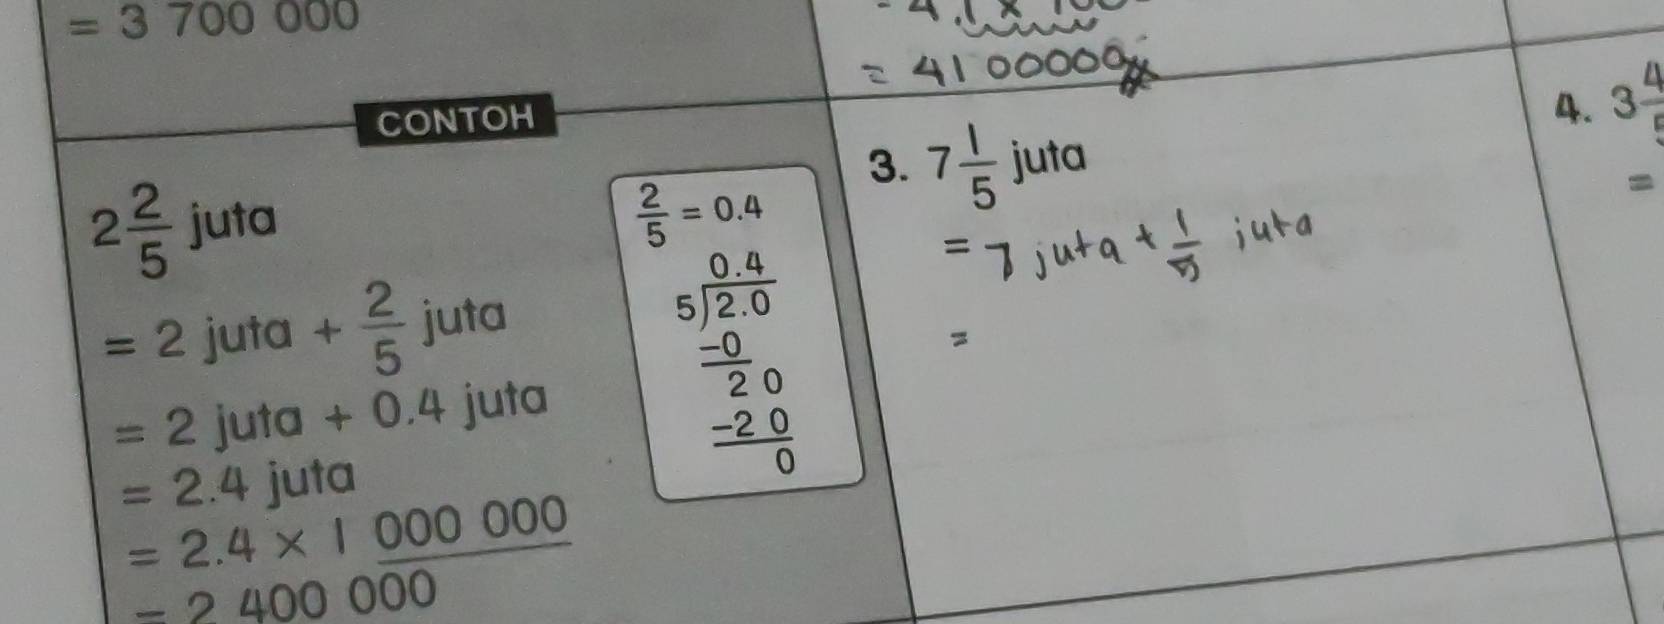 = 3 700 000
= 4100000
CONTOH
2 2/5 juta
= 2 juta + 2/5 juta
= 2 juta + 0.4 juta
= 2.4 juta
= 2.4 × 1 000 000
= 2 400 000
2/5 = 0.4
0.4
5)2.0
-0
2 0
-2 0
0
3. 7 1/5 juta
= 7 juta + 1/5 juta
=
4. 3
=